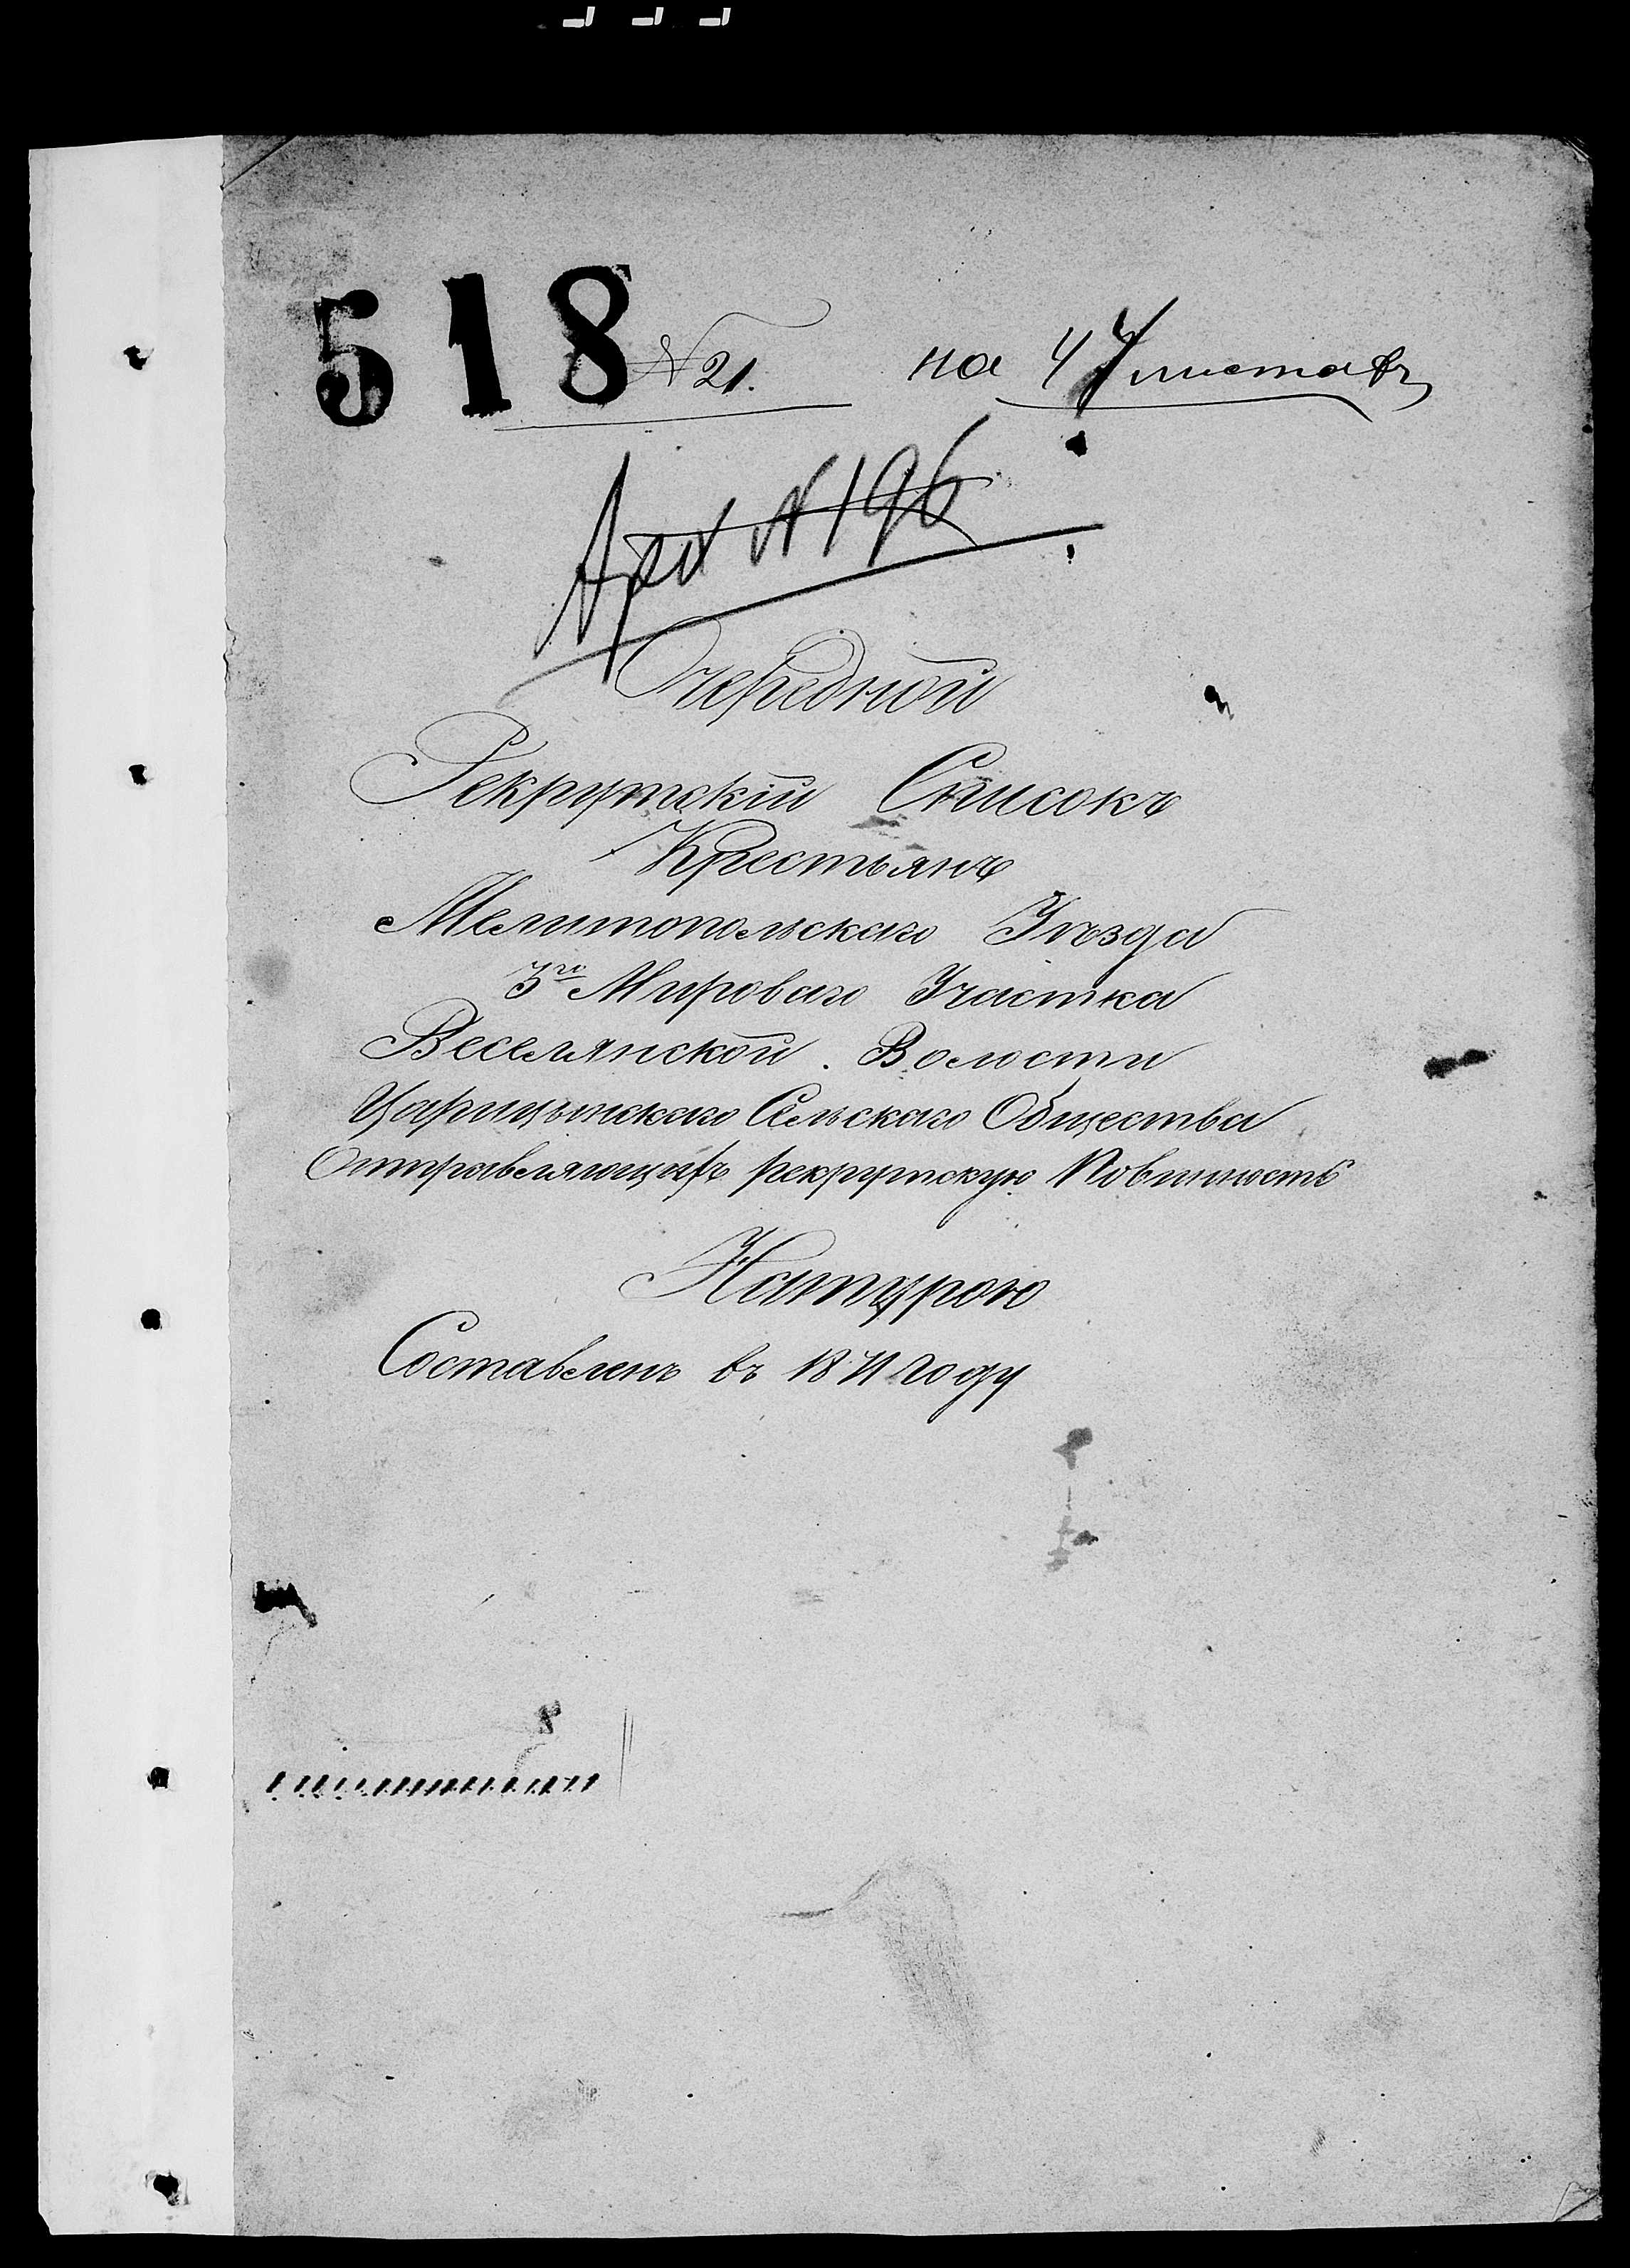 518 № 21. на 47 листахъ
Арх № 196
Очередной
Рекрутскій Списокъ
Крестьянъ
Мелитопольскаго Уѣзда
3го Мироваго Участка
Веселянской Волости
Царицынскаго Сельскаго Общества
Отправляющихъ рекрутскую Повинность
Натурою
Составленъ въ 1871 году